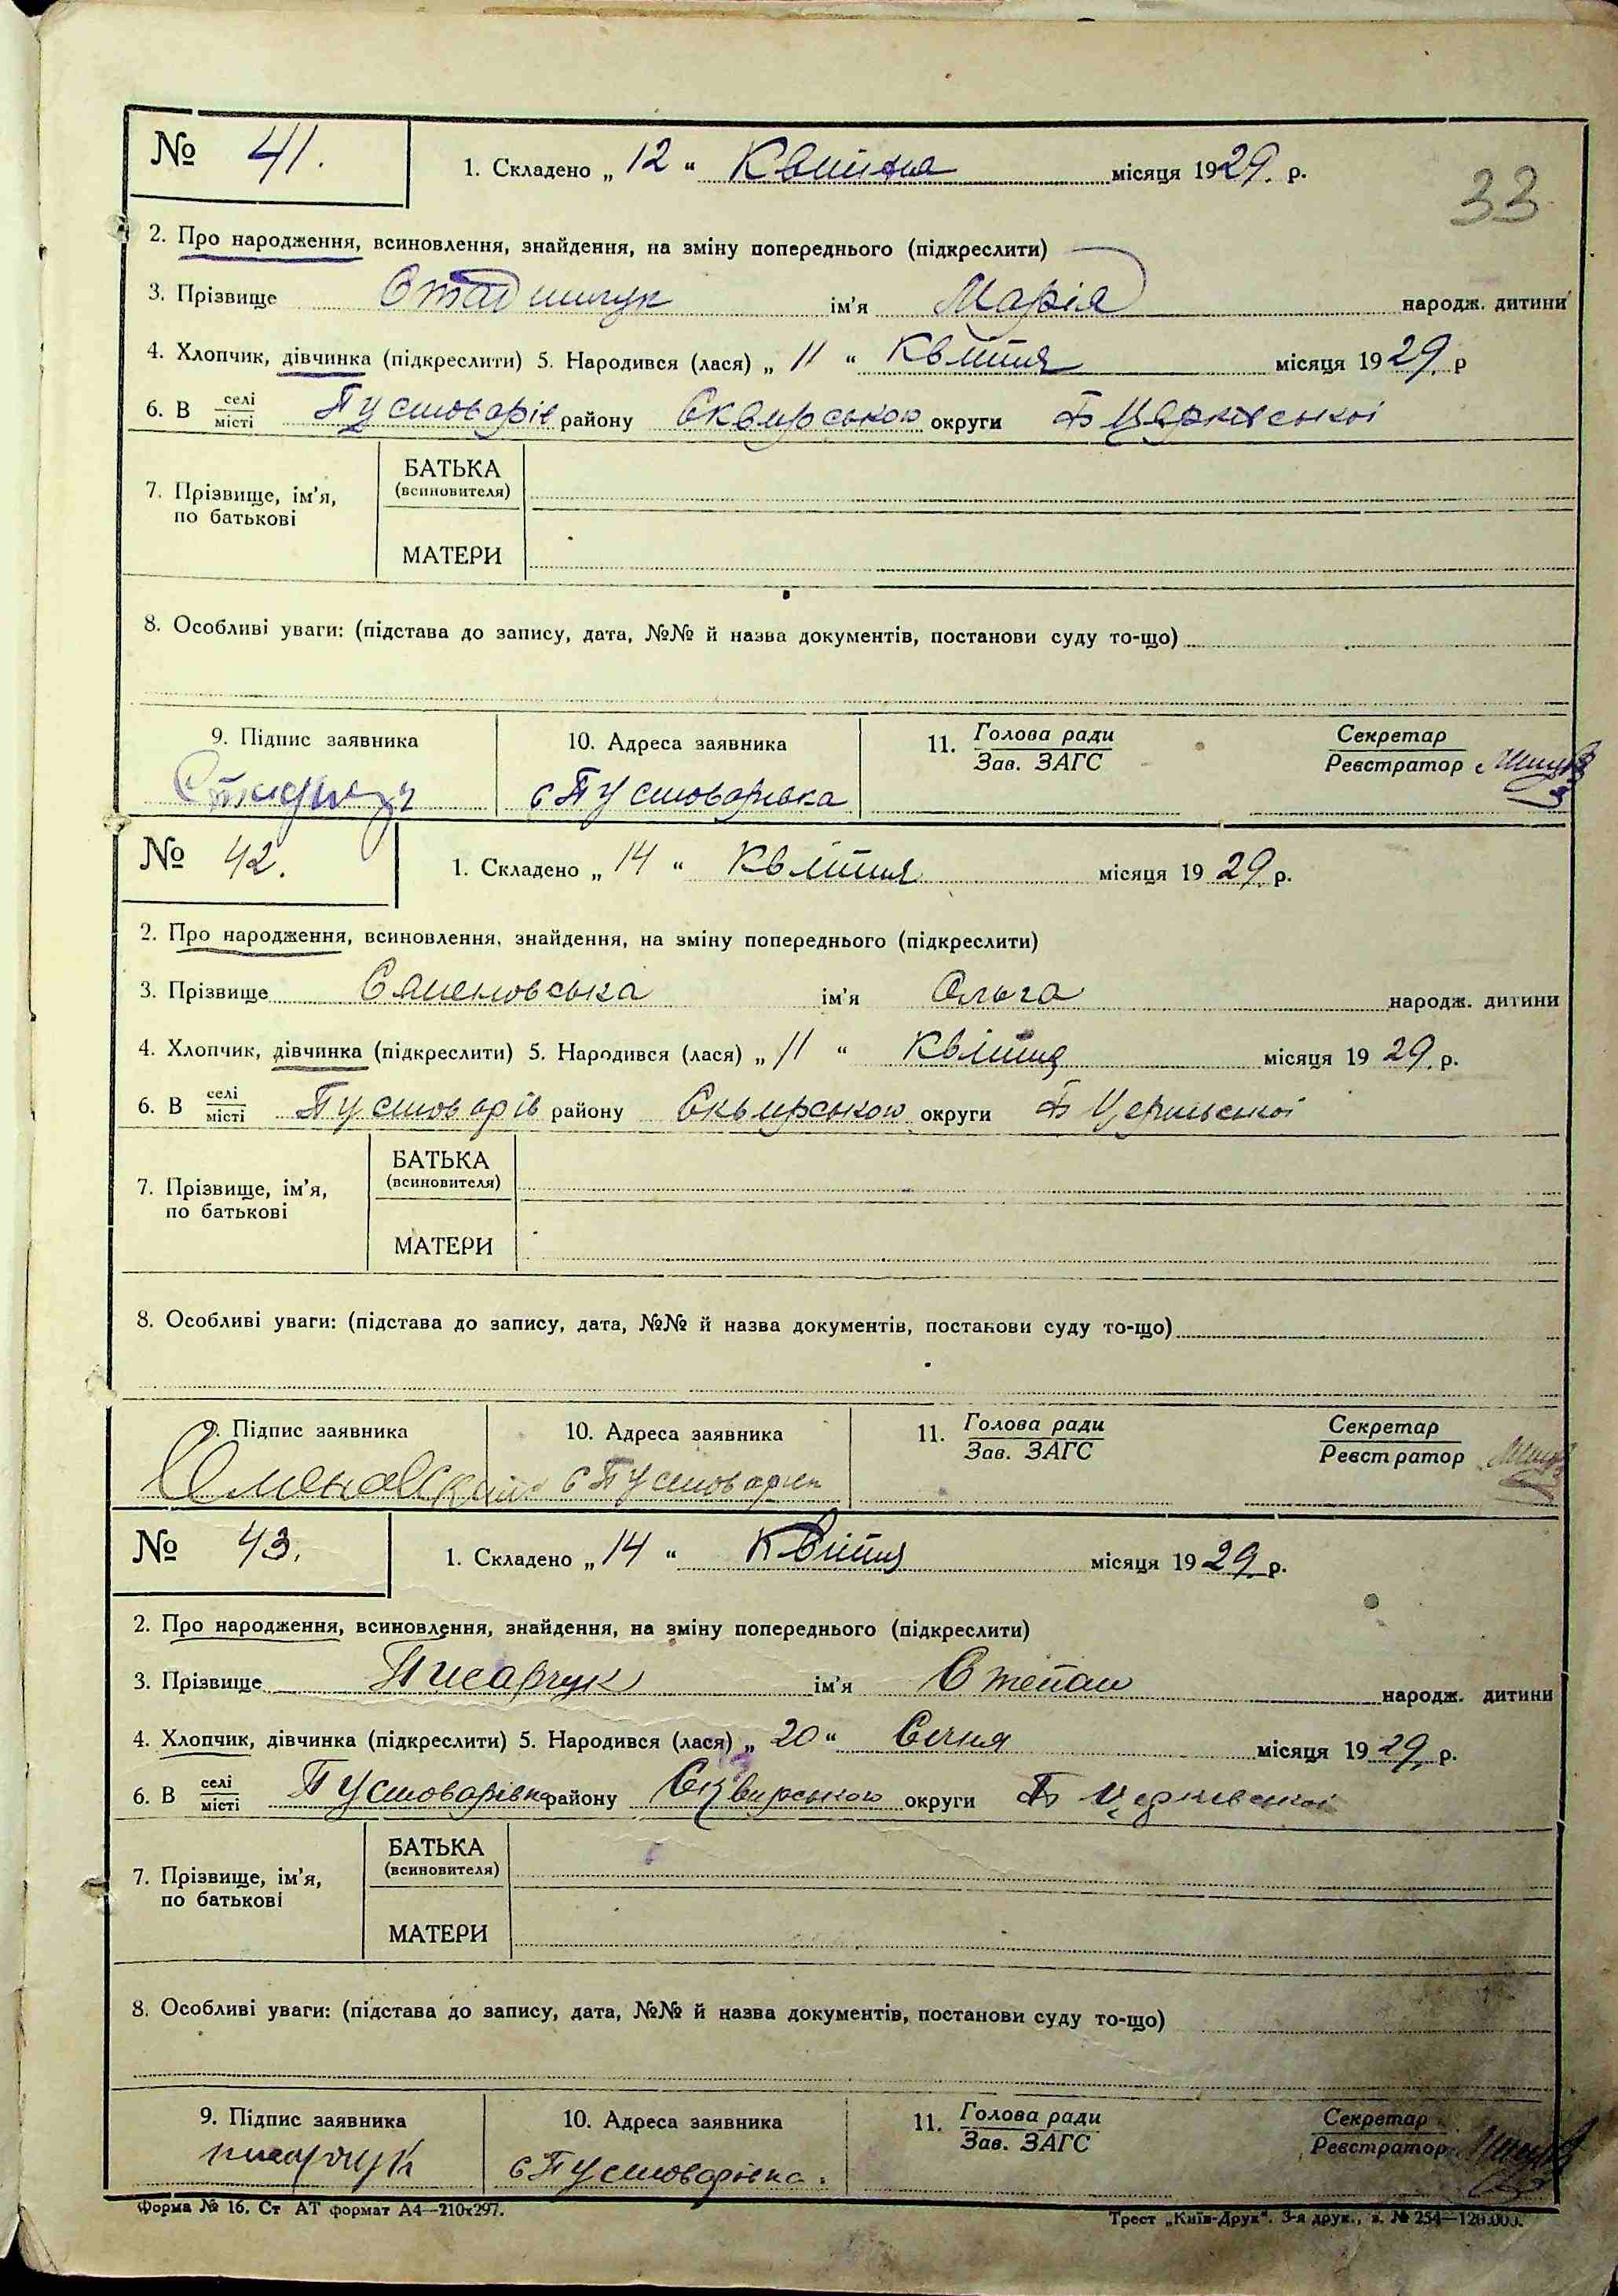 № 41. 1. Складено „ 12 “ Квітня місяця 1929. р.
33
2. Про народження, всиновлення, знайдення, на зміну попереднього (підкреслити)
3. Прізвище ім’я Марія народж. дитини
4. Хлопчик, дівчинка (підкреслити) 5. Народився (лася) „ 11 “ Квітня місяця 1929. р
6. В селі місті Пустоварів району Сквирського округи Б Церківської
7. Прізвище, ім’я, по батькові
БАТЬКА (всиновителя)
МАТЕРИ
8. Особливі уваги: (підстава до запису, дата, №№ й назва документів, постанови суду то-що)
9. Підпис заявника 10. Адреса заявника 11. Голова ради Зав. ЗАГС Секретар Реєстратор
с Пустоварівка
№ 42. 1. Складено „ 14 “ Квітня місяця 1929 р.
2. Про народження, всиновлення, знайдення, на зміну попереднього (підкреслити)
3. Прізвище Семеновська ім’я Ольга народж. дитини
4. Хлопчик, дівчинка (підкреслити) 5. Народився (лася) „ 11 “ Квітня місяця 1929. р.
6. В селі місті Пустоварів району Сквирського округи Б Церківської
7. Прізвище, ім’я, по батькові
БАТЬКА (всиновителя)
МАТЕРИ
8. Особливі уваги: (підстава до запису, дата, №№ й назва документів, постанови суду то-що)
9. Підпис заявника 10. Адреса заявника 11. Голова ради Зав. ЗАГС Секретар Реєстратор
№ 43. 1. Складено „ 14 “ Квітня місяця 1929. р.
2. Про народження, всиновлення, знайдення, на зміну попереднього (підкреслити)
3. Прізвище Писарчук ім’я Степан народж. дитини
4. Хлопчик, дівчинка (підкреслити) 5. Народився (лася) „ 20 “ Січня місяця 1929. р.
6. В селі місті Пустоварівка району Сквирського округи Б Церківської
7. Прізвище, ім’я, по батькові
БАТЬКА (всиновителя)
МАТЕРИ
8. Особливі уваги: (підстава до запису, дата, №№ й назва документів, постанови суду то-що)
9. Підпис заявника 10. Адреса заявника 11. Голова ради Зав. ЗАГС Секретар Реєстратор
писарчук с Пустоварівка.
Форма № 16. Ст АТ формат А4—210х297. Трест „Київ-Друк“. 3-я друк., з. № 254—120.000.